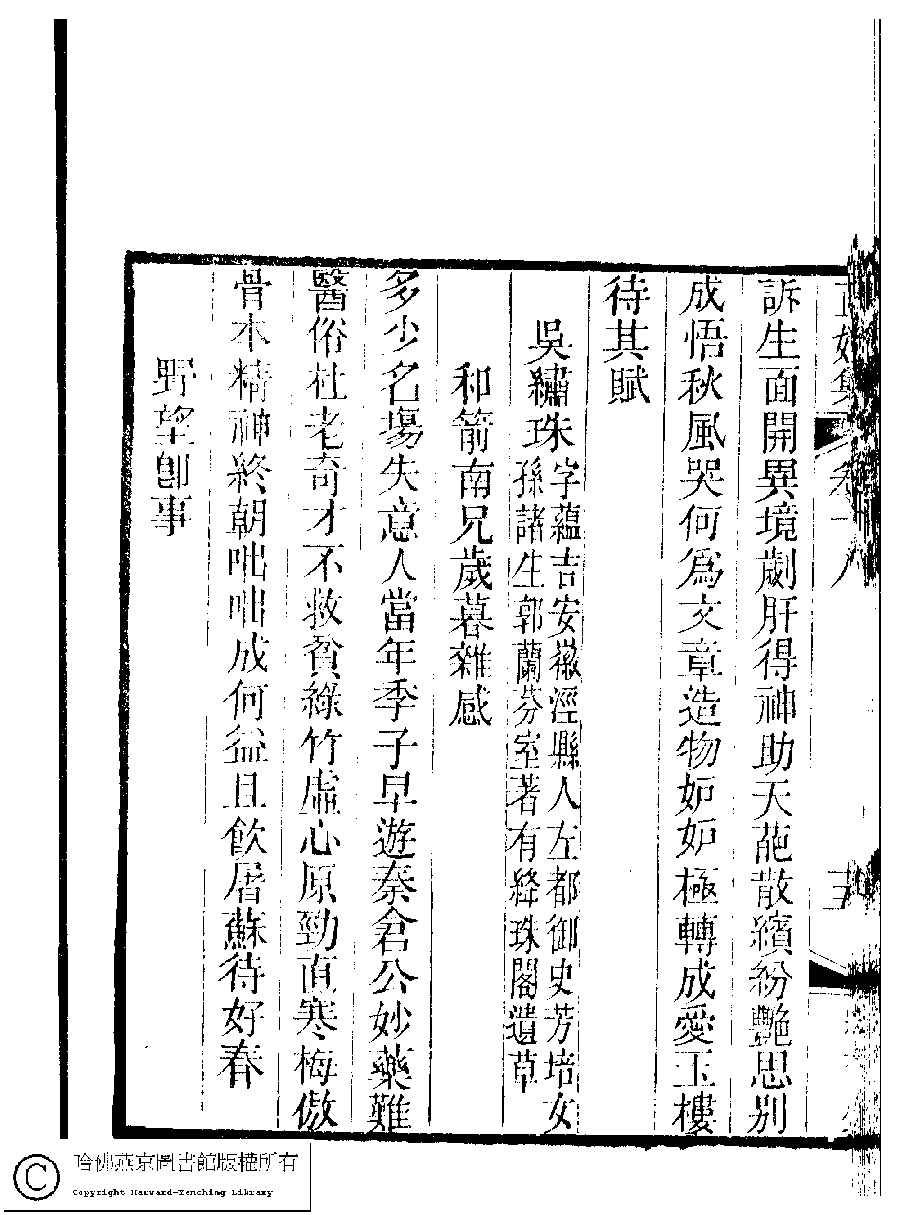 訴生面開異境劌肝得神助天葩散繽紛艷思别
成悟秋風哭何為文章造物妬妬極轉成愛玉樓
待其賦
吳繡珠字蘊吉安徽涇縣人左都御史芳培女
孫諸生郭蘭芬室著有絳珠閣遺草
和箭南兄歲暮雜感
多少名場失意人當年季子早遊秦倉公妙藥難
醫俗杜老奇才不救貧綠竹虛心原勁直寒梅傲
骨本精神終朝咄咄成何益且飲屠蘇待好春
野望卽事
哈佛燕京圖書館版權所有
Copyright Harvard-Yenching Library